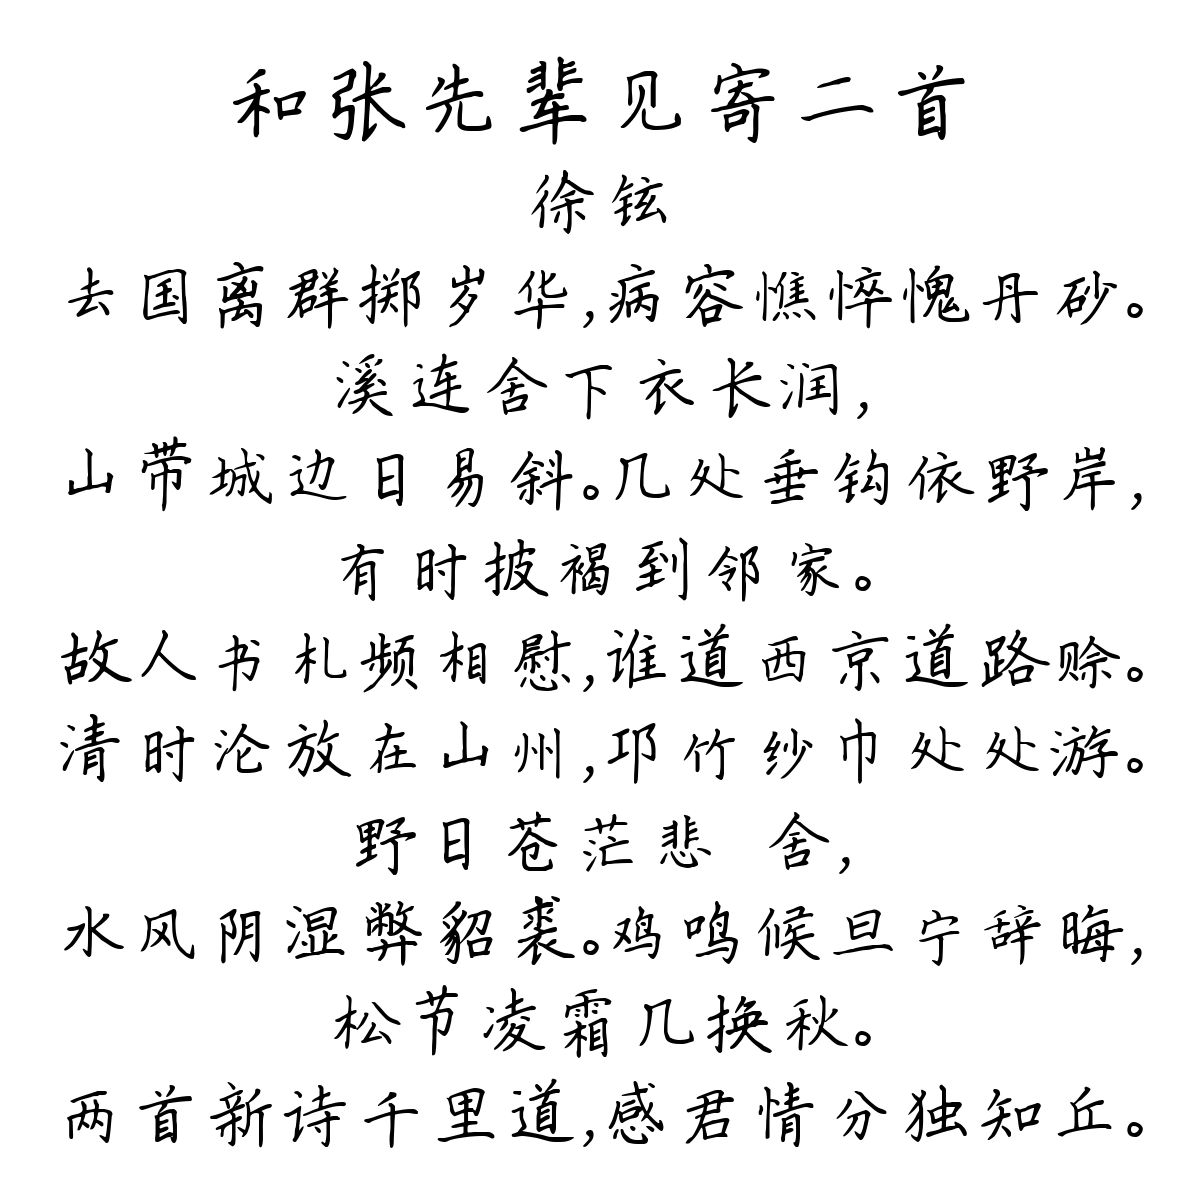 和张先辈见寄二首
徐铉
去国离群掷岁华,病容憔悴愧丹砂。
溪连舍下衣长润,
山带城边日易斜。几处垂钩依野岸,
有时披褐到邻家。
故人书札频相慰,谁道西京道路赊。
清时沦放在山州,邛竹纱巾处处游。
野日苍茫悲 舍,
水风阴湿弊貂裘。鸡鸣候旦宁辞晦,
松节凌霜几换秋。
两首新诗千里道,感君情分独知丘。